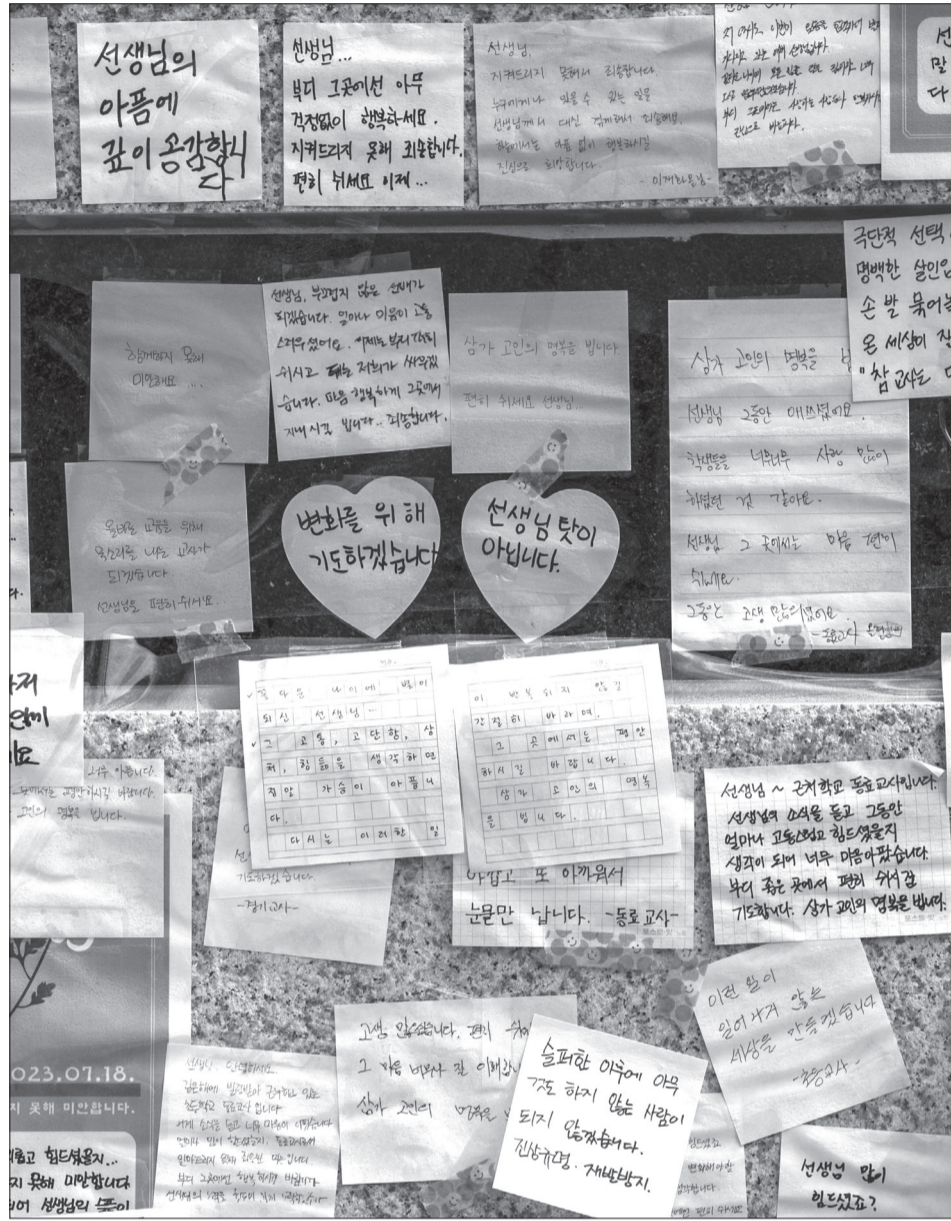 선생님의
아픔에
깊이 공감합니
다
선생님...
부디 그곳에선 아무
걱정없이 행복하세요.
지켜드리지 못해 죄송합니다.
편히 쉬세요 이제...
선생님,
지켜드리지 못해서 죄송합니다.
누구에게나 있을 수 있는 일을
선생님께서 대신 겪게해서 죄송해요
하늘에서는 아픔 없이 행복하시길
진심으로 희망합니다.
극단적 선택
명백한 살인입
손 발 묶어놓
온 세상이 잘
"참교사는 단
함께하지 못해
미안해요 ...
선생님, 부끄럽지 않은 선배가
되겠습니다. 얼마나 마음이 고통
스러우셨어요. 이제는 부디 편히
쉬시고 때는 저희가 싸우겠
습니다. 마음 행복하게 그곳에서
지내시길 빕니다.. 죄송합니다.
삼가 고인의 명복을 빕니다
편히 쉬세요 선생님...
삼가 고인의 명복을
선생님 그동안 애쓰셨어요.
학생들을 너무너무 사랑 많이
하셨던 것 같아요.
선생님 그 곳에서는 마음 편히
쉬세요.
그동안 고생 많으셨어요.
-동료교사
올바른 교육을 위해
목소리를 내는 교사가
되겠습니다
선생님을 편히 쉬세요...
변화를 위해
기도하겠습니다
선생님 탓이
아닙니다.
꽃다운 나이에 별이
되신 선생님...
그 고통, 고단함, 상
처, 힘듦을 생각하면
정말 가슴이 아픕니
다.
다시는 이러한 일
이 반복되지 않길
간절히 바라며,
그 곳에서는 평안
하시길 바랍니다.
삼가 고인의 명복
을 빕니다.
너무 아픕니다.
평안하시길 바랍니다.
고인의 명복을 빕니다.
기도하겠습니다.
-경기교사-
아깝고 또 아까워서
눈물만 납니다. -동료교사-
선생님 ~ 근처학교 동료교사입니다.
선생님의 소식을 듣고 그동안
얼마나 고통스럽고 힘드셨을지
생각이 되어 너무 마음아팠습니다.
부디 좋은 곳에서 편히 쉬시길
기도합니다. 삼가 고인의 명복을 빕니다.
포스트-잇
이런 일이
일어나지 않는
세상을 만들겠습니다
-초등교사-
고생 많으셨습니다. 편히 쉬
그 마음 너무나 잘 이해합
삼가 고인의 명복을
슬퍼한 이후에 아무
것도 하지 않는 사람이
되지 않겠습니다.
진상규명·재발방지.
선생님 많이
힘드셨죠?
023.07.18.
지 못해 미안합니다.
롭고 힘드셨을지...
지 못해 미안합니다
되어 선생님의 슬픔이
선생님, 안녕하세요.
초등학교 동료교사입니다